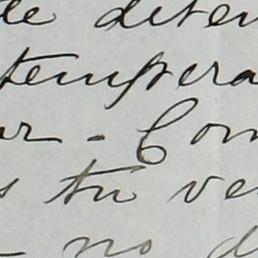 de deten
tempera
ar - Com
s tu ve
no d